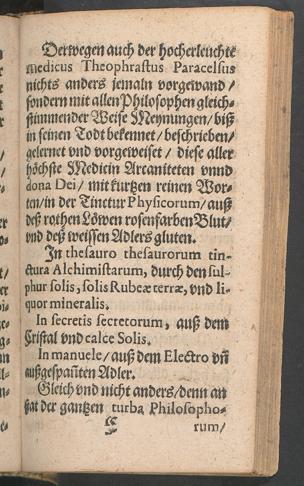 Derwegen auch der hocherleuchte
medicus Theophrastus Paracelsus
nichts anders jemaln vorgewand /
sondern mit allen Philosophen gleich-
stimmender Weise Meynungen/ biß
in seinen Todt bekennet / beschrieben/
gelernet vnd vorgeweiset / diese aller
höchste Medicin Arcaniteten vnnd
dona Dei / mit kurtzen reinen Wor-
ten/ in der Tinctur Physicorum/ auß
deß rothen Löwen rosenfarben Blut/
vnd deß weissen Adlers gluten.
In thesauro thesaurorum tin-
ctura Alchimistarum, durch den sul-
phur solis, solis Rubeæ terræ, vnd li-
quor mineralis.
In secretis secretorum, auß dem
Cristal vnd calce Solis.
In manuele/ auß dem Electro vñ
außgespañten Adler.
Gleich vnd nicht anders/denn an
stat der gantzen turba Philosopho-
rum/